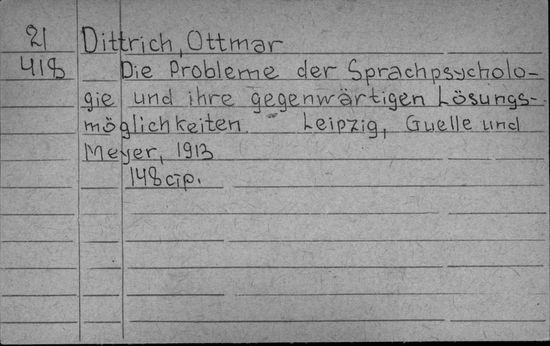 21 Dittrich, Ottmar
418 Die Probleme der Sprachpsycholo-
gie und ihre gegenwärtigen Lösungs-
möglichkeiten. Leipzig, Guelle und
Meyer, 1913
148 стр.